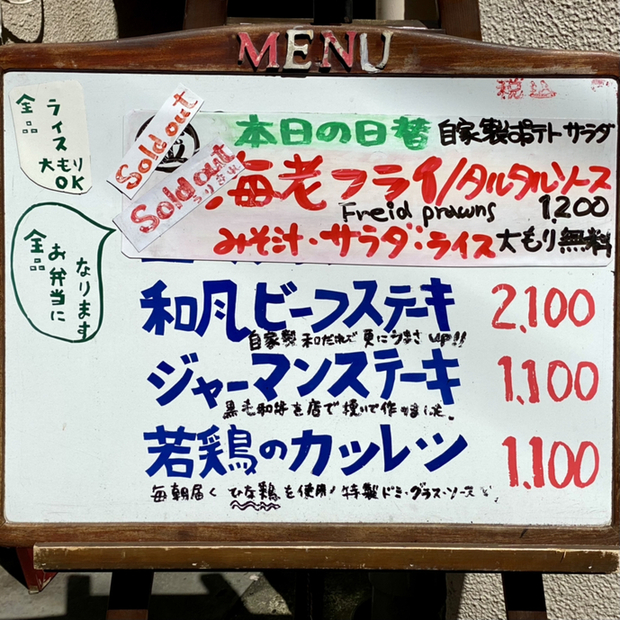 MENU
税込
全品
ライス
大もり
OK
Sold out
Sold out
うりきれ
本日の日替
自家製ポテトサラダ
海老フライ/タルタルソース
Freid prawns 1,200
みそ汁・サラダ・ライス 大もり無料
全品
お弁当に
なります
和風ビーフステーキ 2,100
自家製和だれで更にうまさup!!
ジャーマンステーキ 1,100
黒毛和牛を店で挽いて作りました。
若鶏のカツレツ 1,100
毎朝届くひな鶏を使用!特製ドミ・グラス・ソースで